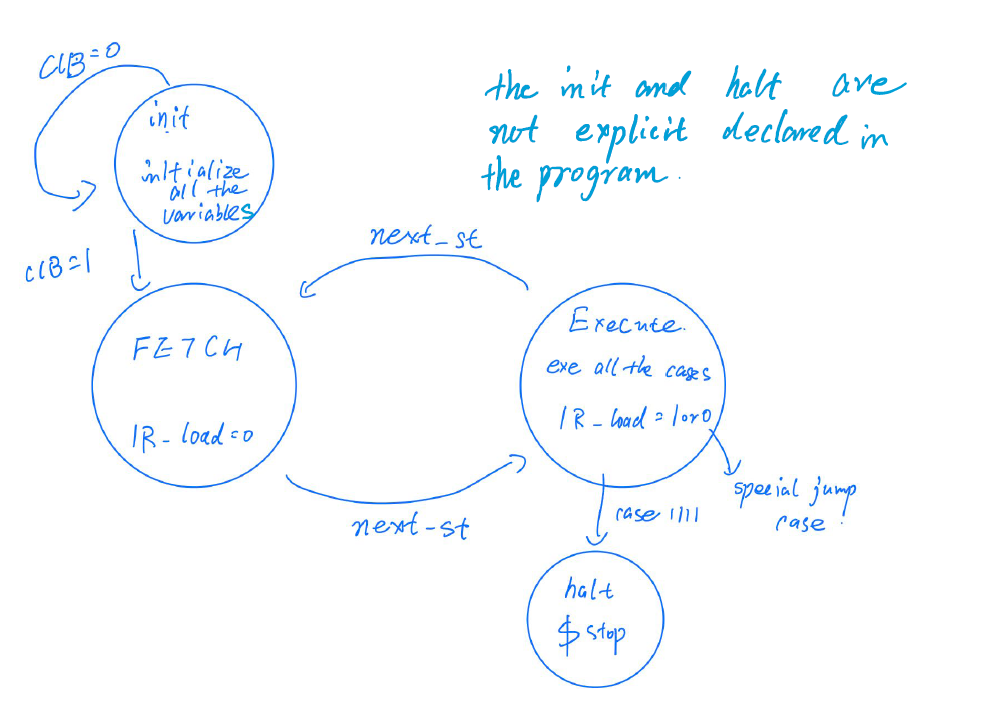 ClB=0
the init and halt are
not explicit declared in
the program.
init
initialize
all the
variables
ClB=1
next_st
FETCH
IR_load=0
Execute.
exe all the cases
IR_load=1or0
next-st
case 1111
special jump
case.
halt
$stop